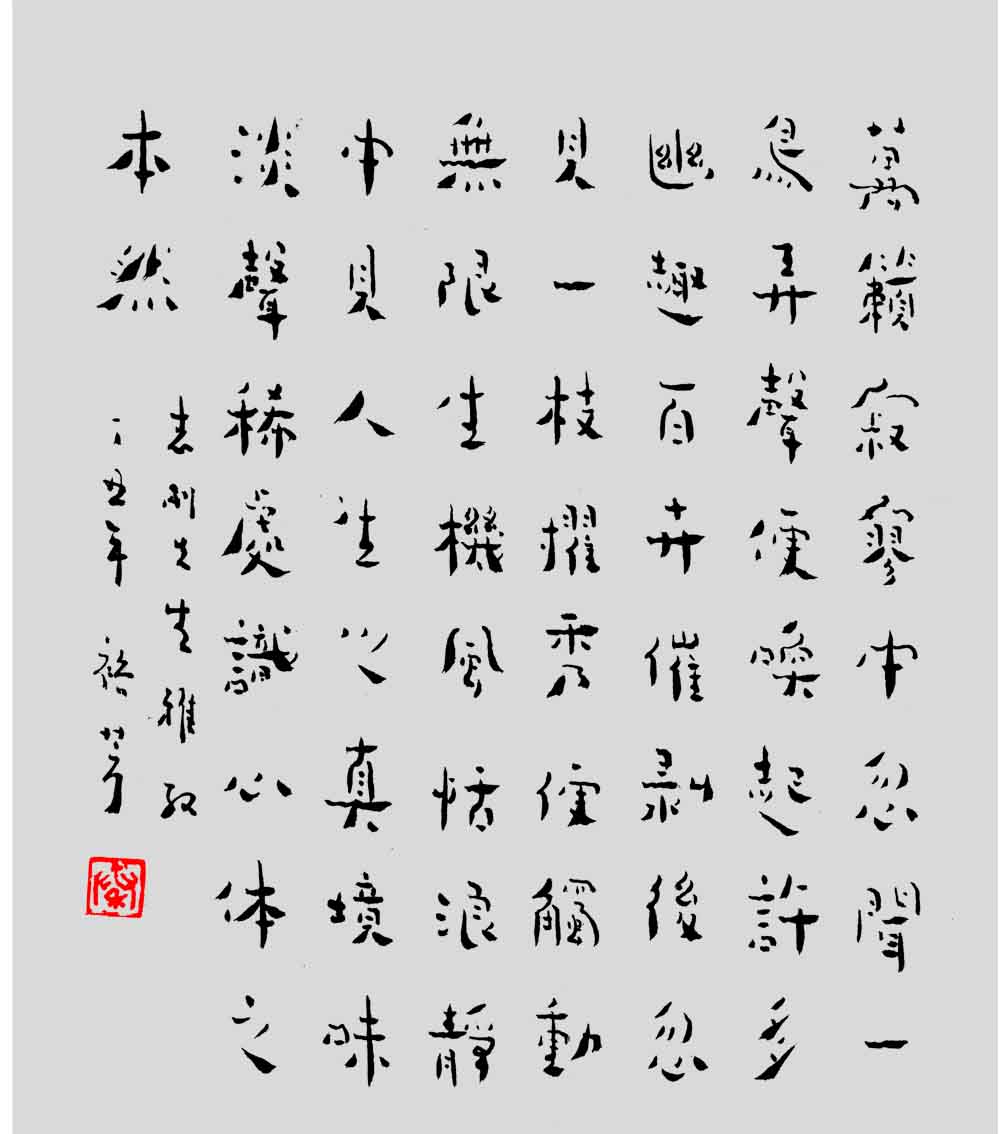 萬籟寂寥中忽聞一
鳥弄聲便喚起許多
幽趣百卉催剝後忽
見一枝擢秀便觸動
無限生機風恬浪靜
中見人生之真境味
淡聲稀處識心体之
本然
志刚先生雅
丁丑年